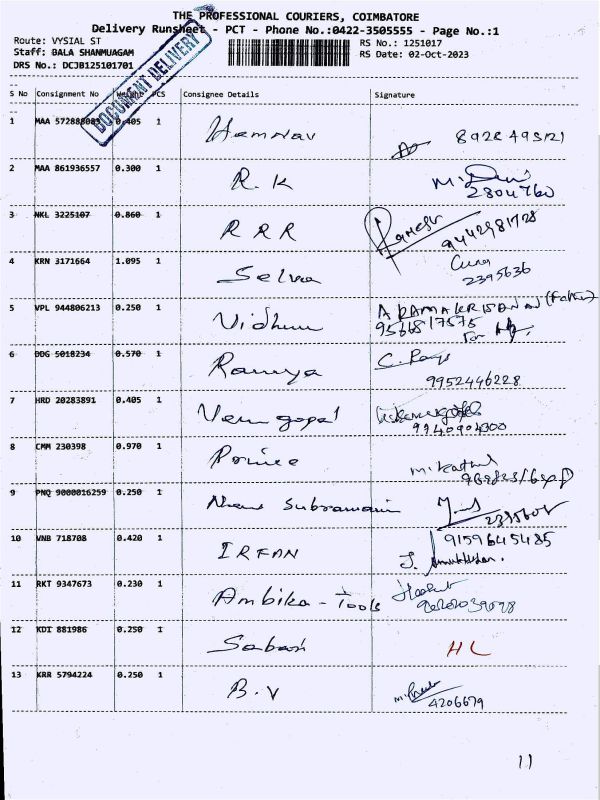 THE PROFESSIONAL COURIERS, COIMBATORE
Delivery Runsheet - PCT - Phone No.:0422-3505555 - Page No.:1
Route: VYSIAL ST
RS No.: 1251017
Staff: BALA SHANMUAGAM
RS Date: 02-Oct-2023
DRS No.: DCJB125101701
DOCUMENT DELIVERY
S No Consignment No Weight PCS Consignee Details Signature
1 MAA 0.405 1 Hemnav
2 MAA 861936557 0.300 1 R.K 2804760
3 NKL 3225107 0.860 1 RRR Ramesh 9442981728
4 KRN 3171664 1.095 1 Selva 2395636
5 VPL 944806213 0.250 1 A RAMAKRISHNAN (Father)
9566817575
For
6 DDG 5018234 0.570 1 Ramya 9952446228
7 HRD 20283891 0.405 1 Venugopal 9940904300
8 CMM 230398 0.970 1 Prince
9 PNQ 9000016259 0.250 1 Subramani
10 VNB 718708 0.420 1 IRFAN 9159645485
11 RKT 9347673 0.230 1 Ambika - Tools
12 KDI 881986 0.250 1 HL
13 KRR 5794224 0.250 1 B.V 4206679
11